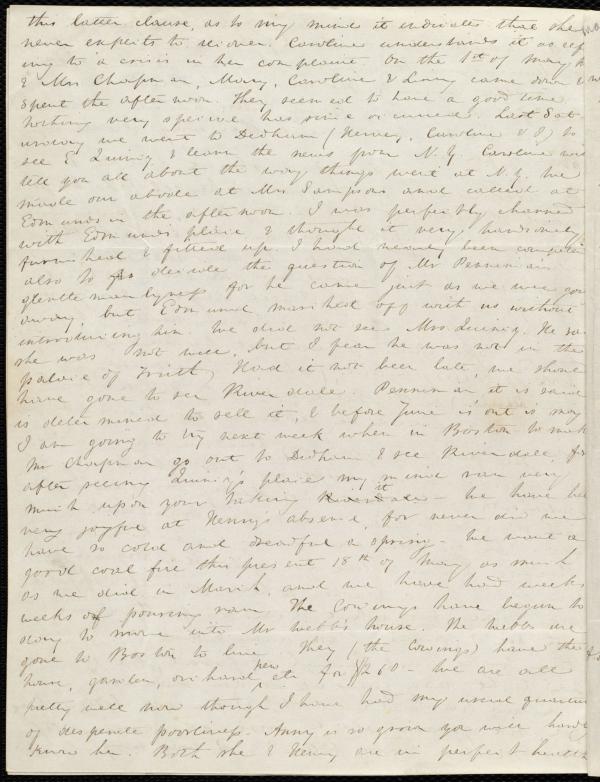 this latter clause, as to my mind it indicates that she
never expects to recover. Caroline understands it as ref
ing to a crisis in her complaint. On the 1st of May
& Mrs Chapman, Mary, Caroline & Lizzy came down &
spent the afternoon. They seemed to have a good time
Nothing very special has since occurred. Last Sat-
urday we went to Dedham (Henry, Caroline & I) to
see E. Quincy & learn the news from N.Y. Caroline will
tell you all about the way things went at N.Y. We
made our abode at Mrs Sampsons and called at
Edmunds in the afternoon. I was perfectly charmed
with Edmunds place & thought it very handsomely
furnished & fitted up. I had nearly been compelled
also to decide the question of Mr Penniman's
gentlemanlyness for he came just as we were going
away, but Edmund marched off with us without
introducing him. We did not see Mrs Quincy. He sa
she was not well, but I fear he was not in the
palace of truth. Had it not been late, we should
have gone to see Riverdale. Penniman it is said
is determined to sell it, & before June is out is may
I am going to try next week when in Boston to make
Mr Chapman go out to Dedham & see Riverdale, for
after seeing Quincy's place my mind ran very
much upon your taking it - We have been
very joyful at Henrys absence, for never did we
have so cold and dreadful a spring - We want a
good coal fire this present 18th of May as much
as we did in March, and we have had weeks
weeks of pouring rain. The Cowings have begun to
slowly to move into Mr Webb's house. The Webbs are
gone to Boston to live. They (the Cowings) have the
house, garden, orchard, pew etc for $260 - We are all
pretty well now though I have had my usual quantum
of desperate poorliness. Anny is so grown you will hardly
know her. Both she & Henry are in perfect health